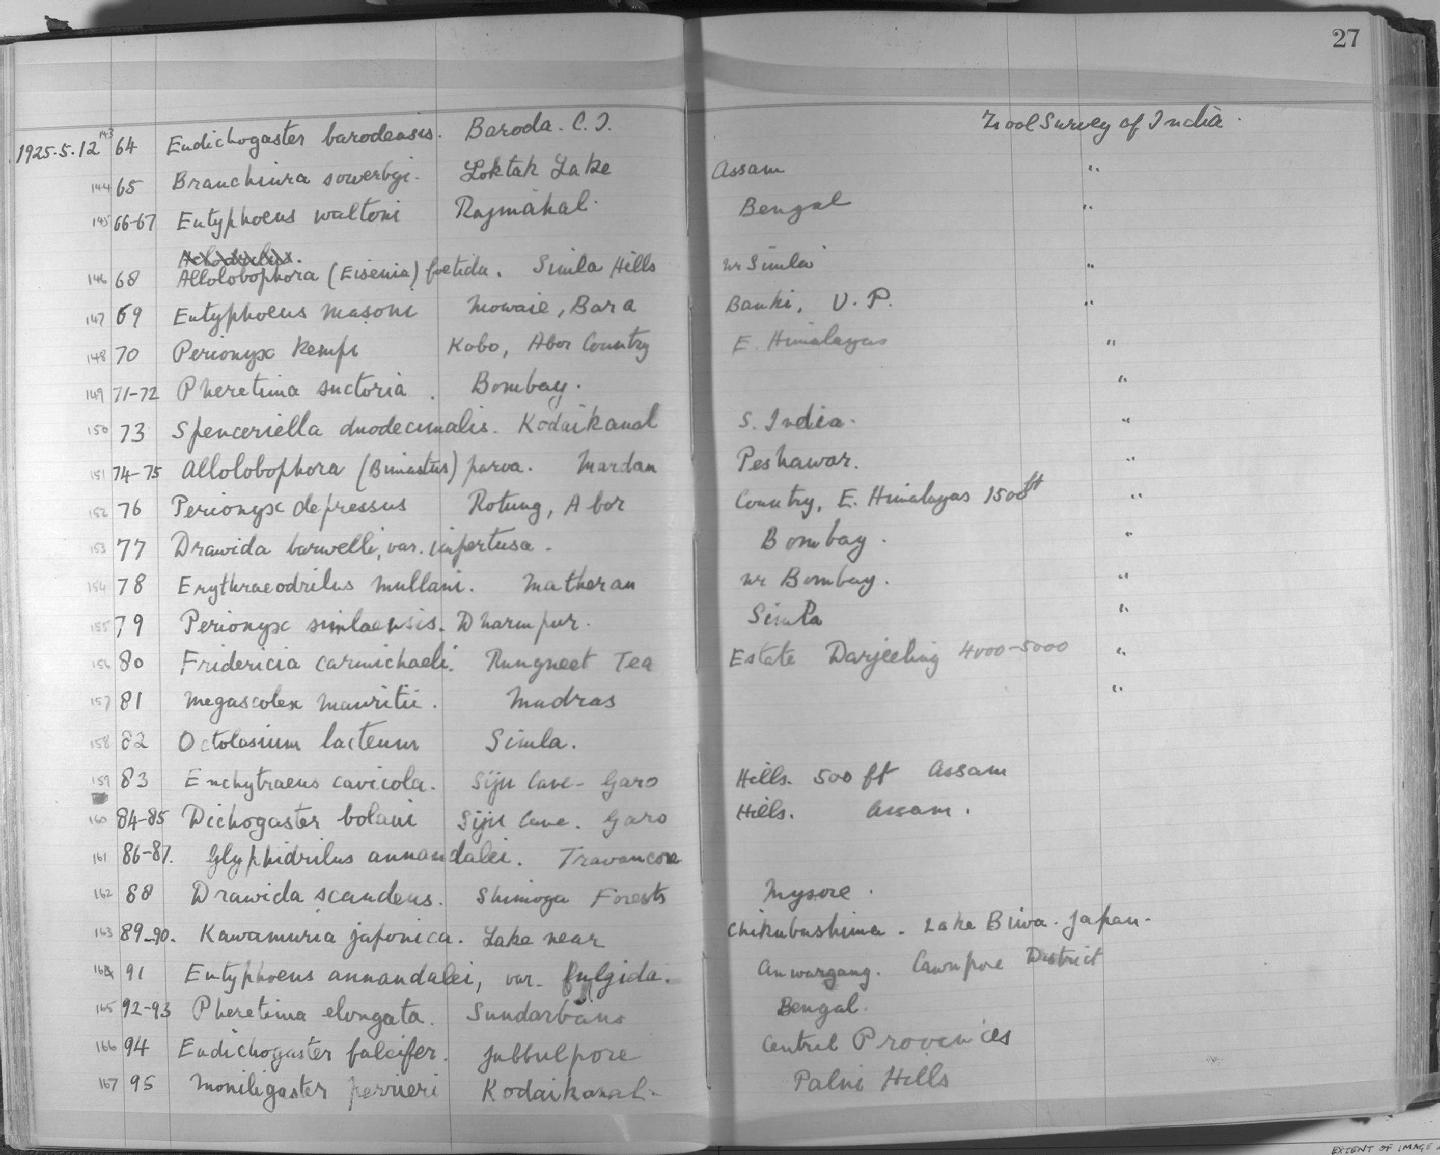 27
1925.5.12 143 64 Eudichogaster barodensis. Baroda. C.I. Zool Survey of India.
144 65 Branchiura sowerbyi. Loktak Lake Assam "
145 66-67 Eutyphoeus waltoni Rajmahal. Bengal "
146 68 Allolobophora (Eisenia) foetida. Simla Hills nr Simla "
147 69 Eutyphoeus masoni Mowaie, Bara Banki, U.P. "
148 70 Perionyx kempi Kobo, Abor Country E. Himalayas "
149 71-72 Pheretima suctoria. Bombay. "
150 73 Spenceriella duodecimalis. Kodaikanal S. India. "
151 74-75 Allolobophora (Bimastus) parva. Mardan Peshawar. "
152 76 Perionyx depressus Rotung, Abor Country, E. Himalayas 1500 ft "
153 77 Drawida barwelli, var. impertusa. Bombay. "
154 78 Erythraeodrilus mullani. Matheran nr Bombay. "
155 79 Perionyx simlaensis. Dharmpur. Simla "
156 80 Fridericia carmichaeli. Rungneet Tea Estate Darjeeling 4000-5000 "
157 81 Megascolex mauritii. Madras "
158 82 Octolasium lacteum Simla.
159 83 Enchytraeus cavicola. Siju Cave - Garo Hills. 500 ft Assam
160 84-85 Dichogaster bolaui Siju Cave. Garo Hills. Assam.
161 86-87. Glyphidrilus annandalei. Travancore
162 88 Drawida scandens. Shimoga Forests Mysore.
163 89-90. Kawamuria japonica. Lake near Chikubushima. Lake Biwa. Japan.
164 91 Eutyphoeus annandalei, var. fulgida. Anwargang. Cawnpore District
165 92-93 Pheretima elongata. Sundarbans Bengal.
166 94 Eudichogaster falcifer. Jubbulpore Central Provinces
167 95 Moniligaster perrieri Kodaikanal. Palni Hills
EXTENT OF IMAGE